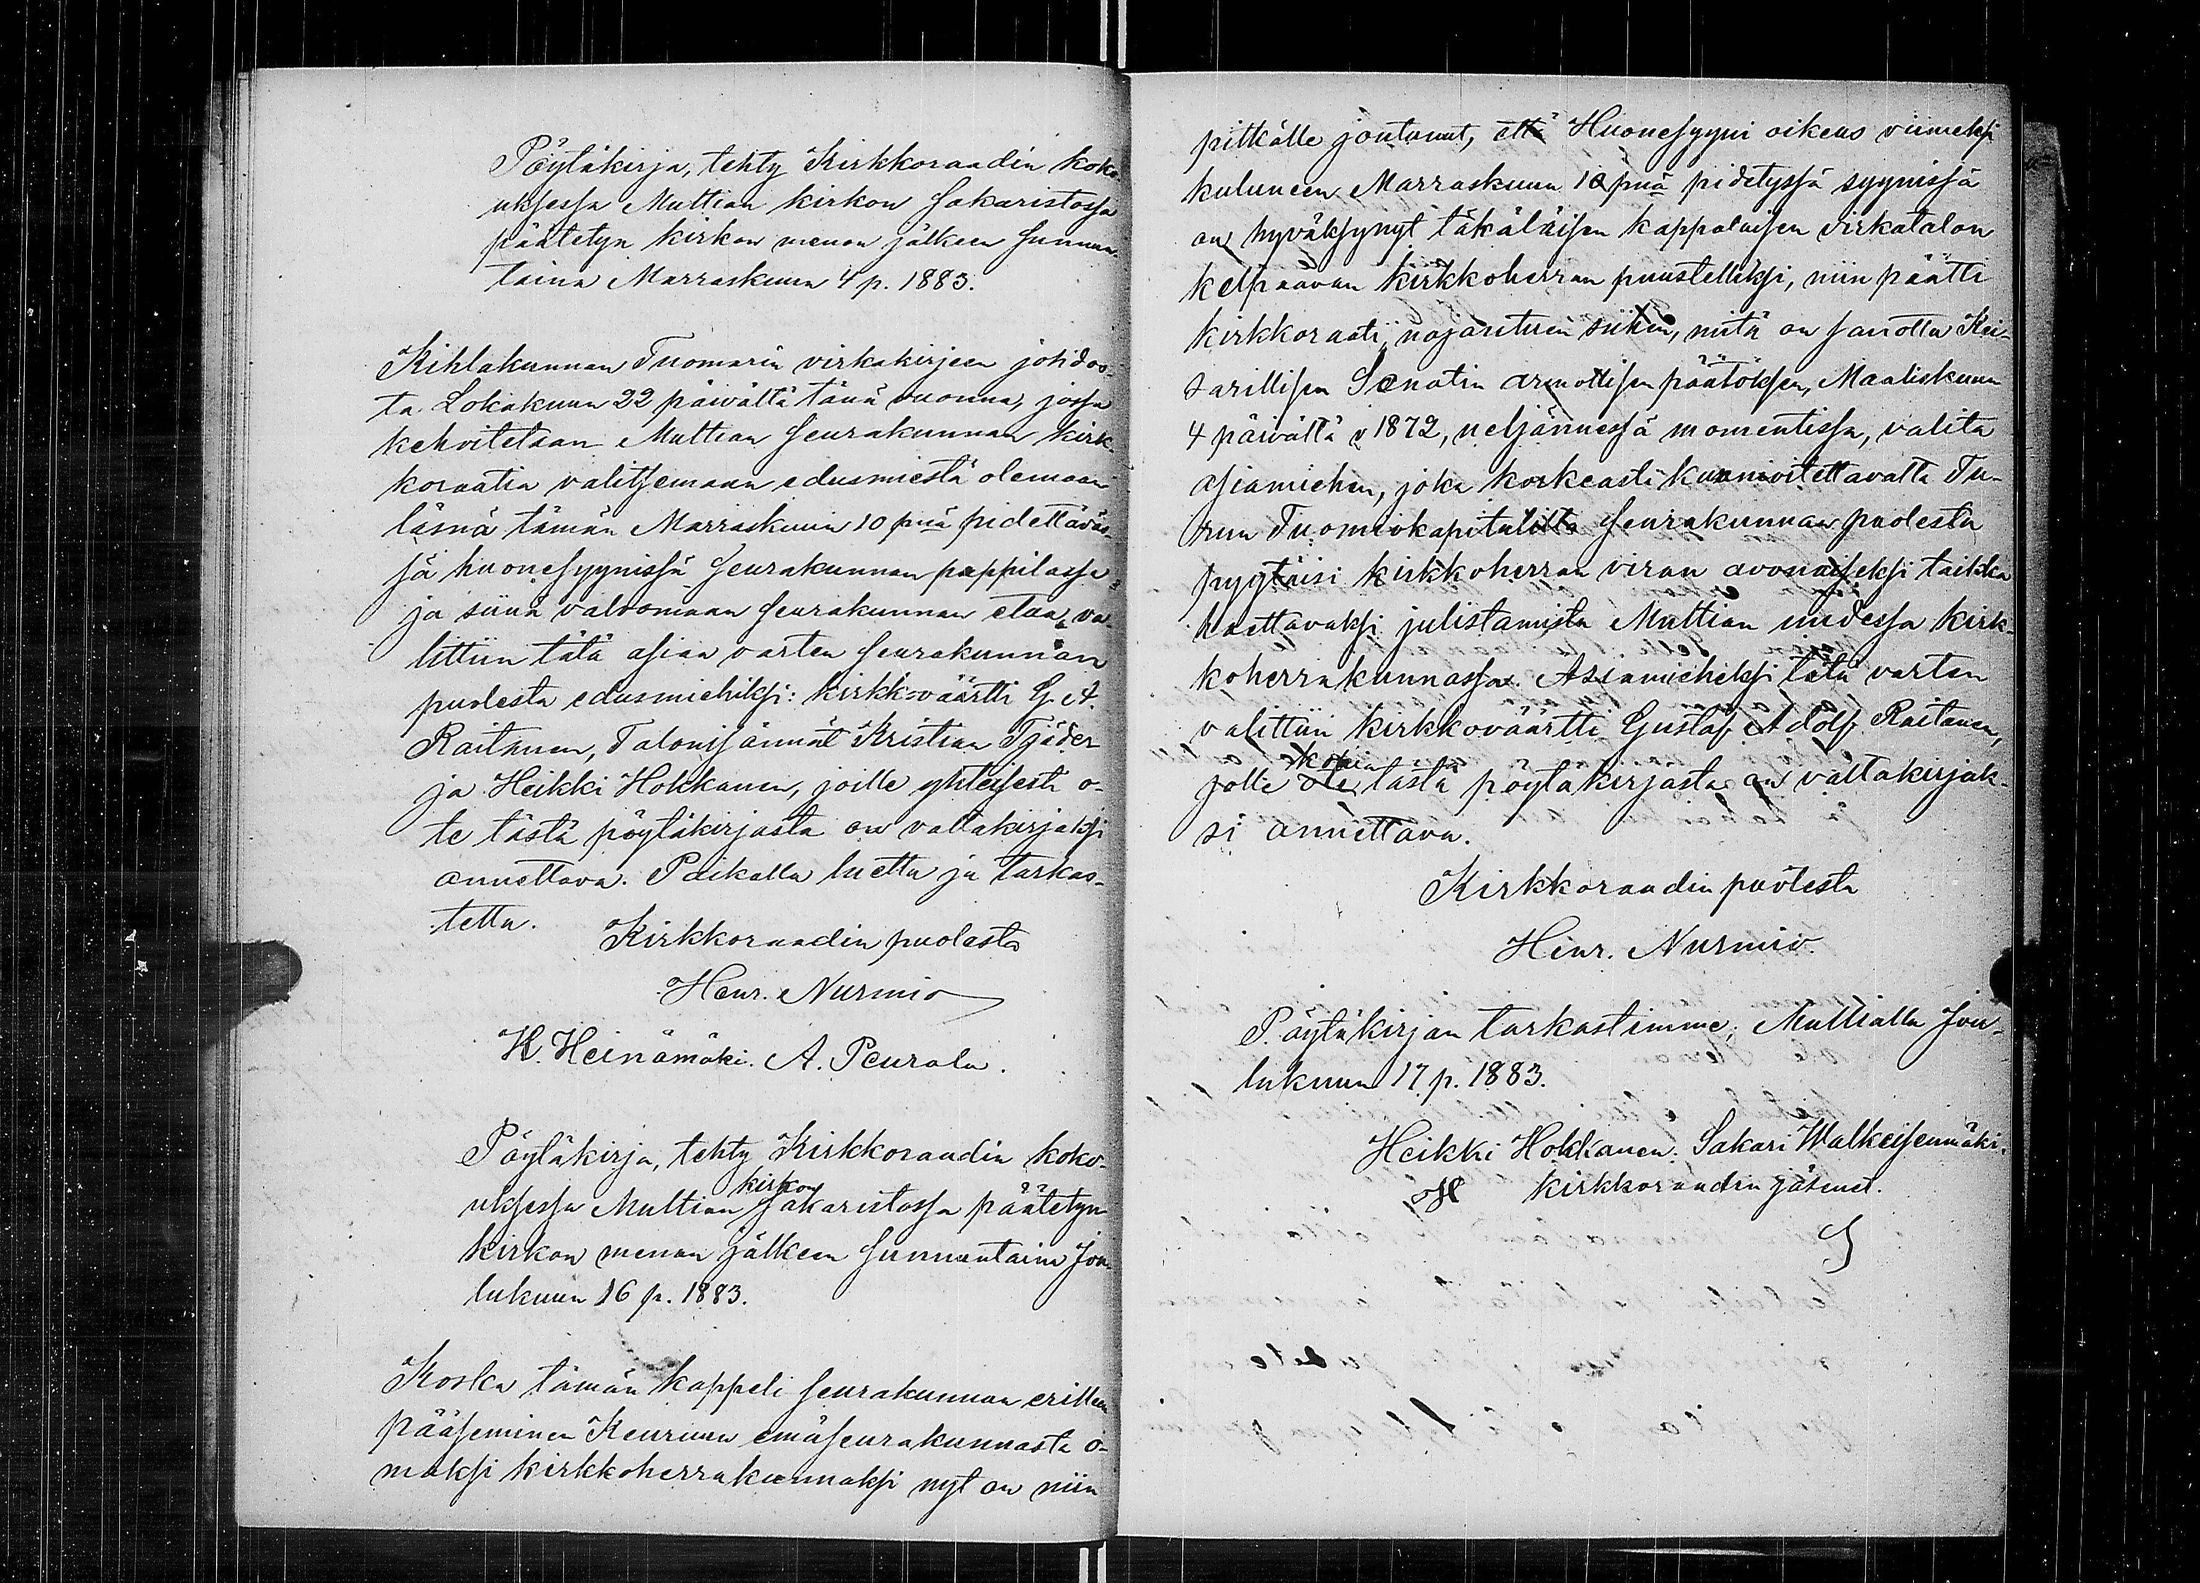 Pöytäkirja, tehty Kirkkoraadin koko-
uksessa Multian kirkon sakaristossa
päätetyn kirkon menon jälkeen sunnun-
taina Marraskuun 4 p. 1883.
Kihlakunnan Tuomarin virkakirjeen johdos-
ta Lokakuun 22 päivältä tänä vuonna, jossa
kehoitetaan Multian seurakunnan kirk-
koraatia valitsemaan edusmiestä olemaan
läsnä tämän Marraskuun 10 pnä pidettäväs-
sä huonesyynissä seurakunnan pappilassa
ja siinä valvomaan seurakunnan etua, va-
littiin tätä asiaa varten seurakunnan
puolesta edusmiehiksi: kirkkoväärtti G. A.
Raitanen, Talonisännät Kristian Tjäder
ja Heikki Hokkanen, joille yhteisesti o-
te tästä pöytäkirjasta on valtakirjaksi
annettava. Paikalla luettu ja tarkas-
tettu.
Kirkkoraadin puolesta
Henr. Nurmio
K. Heinämäki. A. Peurala.
Pöytäkirja, tehty Kirkkoraadin koko-
uksessa Multian kirkon sakaristossa päätetyn
kirkon menon jälkeen sunnuntaina Jou-
lukuun 16 p. 1883.
Koska tämän kappeli seurakunnan erilleen
pääseminen Keuruun emäseurakunnasta o-
maksi kirkkoherrakunnaksi nyt on niin
pitkälle joutunut, että Huonesyyni oikeus viimeksi
kuluneen Marraskuun 10 pnä pidetyssä syynissä
on hyväksynyt täkäläisen kappalaisen virkatalon
kelpaavan kirkkoherran puustelliksi, niin päätti
kirkkoraati, nojautuen siihen, mitä on sanottu Kei-
sarillisen Senatin armollisen päätöksen, Maaliskuun
4 päivältä v 1872, neljännessä momentissa, valita
asiamiehen, joka korkeasti kunnioitettavalta Tu-
run Tuomiokapitulilta seurakunnan puolesta
pyytäisi kirkkoherran viran avonaiseksi taikka
haettavaksi julistamista Multian uudessa kirk-
koherrakunnassa. Asiamieheksi tätä varten
valittiin kirkkoväärtti Gustaf Adolf Raitanen,
jolle ote kopia tästä pöytäkirjasta on valtakirjak-
si annettava.
Kirkkoraadin puolesta
Henr. Nurmio
Pöytäkirjan tarkastimme; Multialla Jou-
lukuun 17 p. 1883.
Heikki Hokkanen. Sakari Walkeisenmäki.
kirkkoraadin jäsenet.